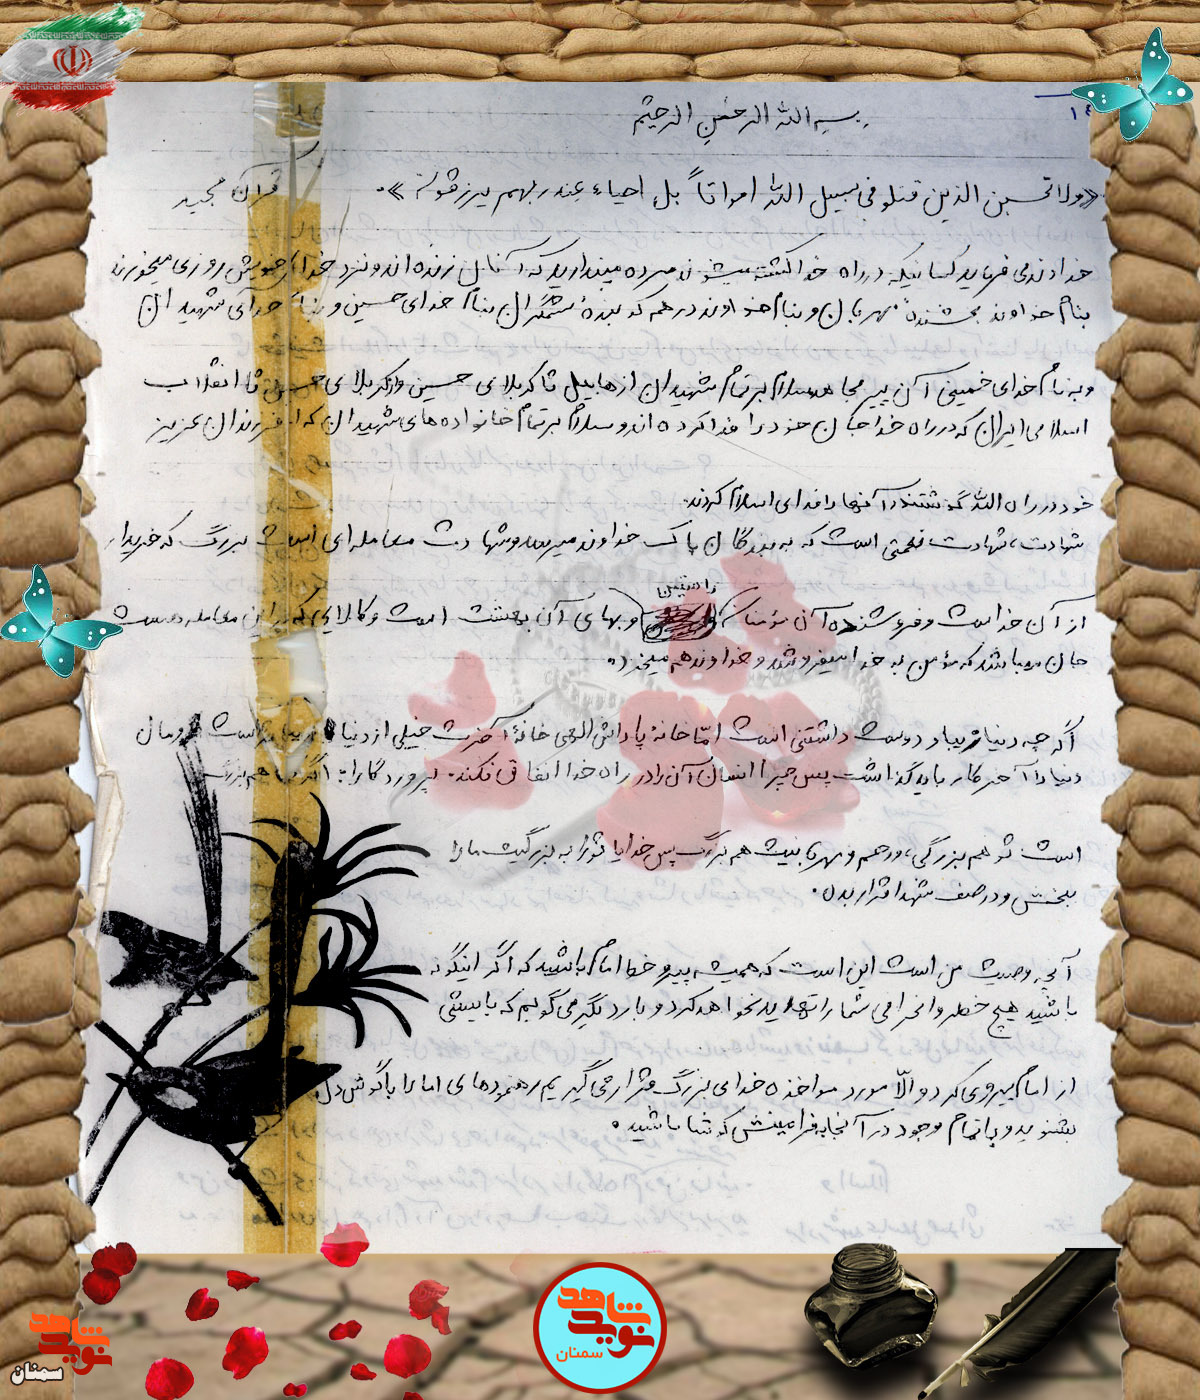 ۱۴
بسم الله الرحمن الرحیم
«ولا تحسبن الذین قتلو فی سبیل الله امواتاً بل احیاء عند ربهم یرزقون» . قرآن مجید
خداوند می فرماید کسانیکه در راه خدا کشته میشوند مرده مپندارید که آنان زنده اند و نزد خدای خویش روزی میخورند
بنام خداوند بخشنده مهربان و بنام خداوند درهم کوبنده ستمگران بنام خدای حسین و بنام خدای شهیدان
و به نام خدای خمینی آن پیر مجاهد سلام بر تمام شهیدان از هابیل تا کربلای حسین و از کربلای حسین تا انقلاب
اسلامی ایران که در راه خدا جان خود را فدا کرده اند و سلام بر تمام خانواده های شهیدان که از فرزندان عزیز
خود در راه الله گذشتند و آنها را فدای اسلام کردند.
شهادت، شهادت نعمتی است که به بندگان پاک خداوند میرسد و شهادت معامله ای است بزرگ که خریدار
راستین
از آن خداست و فروشنده آن مؤمنان و بهای آن بهشت است و کالایی که در این معامله هست
جان میباشد که مؤمن به خدا میفروشد و خداوند هم میخرد.
اگر چه دنیا زیبا و دوست داشتنی است امّا خانهٔ پاداش الهی خانهٔ آخرت خیلی از دنیا زیباتر است و مال
دنیا را آخر کار باید گذاشت پس چرا انسان آن را در راه خدا انفاق نکند. پروردگارا: اگر گناهم بزرگ
است تو هم بزرگی، و رحم و مهربانیت هم بزرگ پس خدایا تو را به بزرگیت ما را
ببخش و در صف شهدا قرار بده.
آنچه وصیت من است این است که همیشه پیرو خط امام باشید که اگر اینگونه
باشید هیچ خطر و انحرافی شما را تهدید نخواهد کرد و بار دیگر می گویم که بایستی
از امام پیروی کرد و الّا مورد مواخذه خدای بزرگ قرار می گیریم رهنمودهای امام را با گوش دل
بشنوید و با تمام وجود در آنجا به فرامینش کوشا باشید.
نوید شاهد
سمنان
نوید شاهد
سمنان